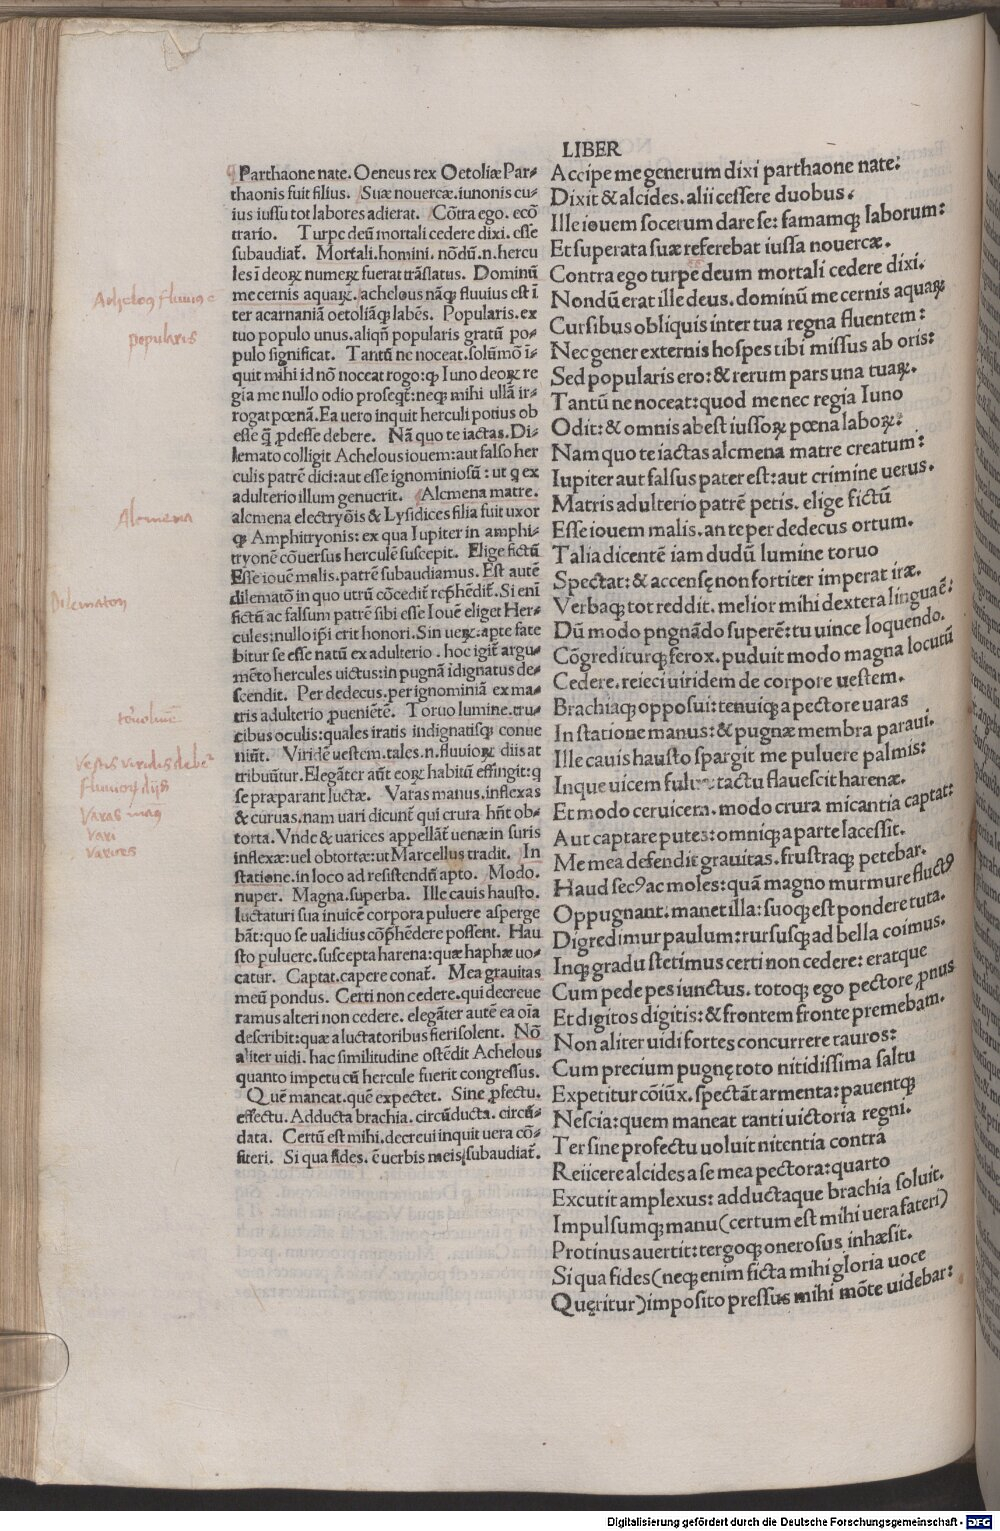 LIBER
Parthaone nate. Oeneus rex Oetoliæ Par-
thaonis fuit filius. Suæ nouercæ.iunonis cu-
ius iussu tot labores adierat. Cōtra ego. ecō
trario. Turpe deū mortali cedere dixi. esse
subaudiat̃. Mortali.homini. nōdū.n.hercu
les ī deoꝝ numeꝝ fuerat trāslatus. Dominū
me cernis aquaꝝ. achelous nāꝗ fluuius est ī
ter acarnaniā oetoliāꝗ labēs. Popularis.ex
tuo populo unus.aliqñ popularis gratū po-
pulo significat. Tantū ne noceat.solūmō ī-
quit mihi id nō noceat rogo:ꝙ Iuno deoꝝ re
gia me nullo odio proseqt̃:neqꝫ mihi ullā ir-
rogat pœnā. Ea uero inquit herculi potius ob
esse q̃ ꝓdesse debere. Nā quo te iactas. Di-
lemato colligit Achelous iouem:aut falso her
culis patrē dici:aut esse ignominiosū: ut q ex
adulterio illum genuerit. Alcmena matre.
alcmena electryōis & Lysidices filia fuit uxor
qꝫ Amphitryonis: ex qua Iupiter in amphi-
tryonē cōuersus herculē suscepit. Elige fictū
Esse iouē malis.patrē subaudiamus. Est autē
dilematō in quo utrū cōcedit̃ rep̃hēdit̃. Si eni
fictū ac falsum patrē sibi esse Iouē eliget Her-
cules:nullo ip̄i erit honori. Sin ueꝝ.apte fate
bitur se esse natū ex adulterio. hoc igit̃ argu-
mēto hercules uictus:in pugnā idignatus de-
scendit. Per dedecus.per ignominiā ex ma-
tris adulterio ꝓueniētē. Toruo lumine.tru-
cibus oculis:quales iratis indignatisqꝫ conue
niūt. Viridē uestem.tales.n.fluuioꝝ diis at
tribuūtur. Elegāter aūt eoꝝ habitū effingit:q
se præparant luctæ. Varas manus.inflexas
& curuas.nam uari dicunt̃ qui crura hñt ob-
torta. Vnde & uarices appellāt̃ uenæ in suris
inflexæ:uel obtortæ:ut Marcellus tradit. In
statione.in loco ad resistendū apto. Modo.
nuper. Magna.superba. Ille cauis hausto.
luctaturi sua inuicē corpora puluere asperge
bāt:quo se ualidius cōp̃hēdere possent. Hau
sto puluere.suscepta harena:quæ haphæ uo-
catur. Captat.capere conat̃. Mea grauitas
meū pondus. Certi non cedere.qui decreue
ramus alteri non cedere. elegāter autē ea oīa
describit:quæ a luctatoribus fieri solent. Nō
aliter uidi. hac similitudine ostēdit Achelous
quanto impetu cū hercule fuerit congressus.
Quē maneat.quē expectet. Sine ꝓfectu.
effectu. Adducta brachia. circūducta. circū-
data. Certū est mihi.decreui inquit uera cō-
fiteri. Si qua fides. ē uerbis meis subaudiat̃.
Accipe me generum dixi parthaone nate:
Dixit & alcides. alii cessere duobus.
Ille iouem socerum dare se: famamqꝫ laborum:
Et superata suæ referebat iussa nouercæ.
Contra ego turpe deum mortali cedere dixi.
Nondū erat ille deus. dominū me cernis aquaꝝ
Cursibus obliquis inter tua regna fluentem:
Nec gener externis hospes tibi missus ab oris:
Sed popularis ero: & rerum pars una tuaꝝ.
Tantū ne noceat: quod me nec regia Iuno
Odit: & omnis abest iussoꝝ pœna laboꝝ:
Nam quo te iactas alcmena matre creatum:
Iupiter aut falsus pater est: aut crimine uerus.
Matris adulterio patrē petis. elige fictū
Esse iouem malis. an te per dedecus ortum.
Talia dicentē iam dudū lumine toruo
Spectat: & accensę non fortiter imperat iræ.
Verbaqꝫ tot reddit. melior mihi dextera linguaē:
Dū modo pngnādo superē: tu uince loquendo.
Cōgrediturqꝫ ferox. puduit modo magna locutū
Cedere. reieci uiridem de corpore uestem.
Brachiaqꝫ opposui: tenuiqꝫ a pectore uaras
In statione manus: & pugnæ membra paraui.
Ille cauis hausto spargit me puluere palmis:
Inque uicem fuluæ tactu flauescit harenæ.
Et modo ceruicem. modo crura micantia captat:
Aut captare putes: omniqꝫ a parte lacessit.
Me mea defendit grauitas. frustraqꝫ petebar.
Haud secꝰ ac moles: quā magno murmure fluctꝰ
Oppugnant. manet illa: suoqꝫ est pondere tuta.
Digredimur paulum: rursusqꝫ ad bella coimus.
Inqꝫ gradu stetimus certi non cedere: eratque
Cum pede pes iunctus. totoqꝫ ego pectore ꝓnus
Et digitos digitis: & frontem fronte premebam.
Non aliter uidi fortes concurrere tauros:
Cum precium pugnę toto nitidissima saltu
Expetitur cōiūx. spectāt armenta: pauentqꝫ
Nescia: quem maneat tanti uictoria regni.
Ter sine profectu uoluit nitentia contra
Reiicere alcides a se mea pectora: quarto
Excutit amplexus: adductaque brachia soluit.
Impulsumqꝫ manu (certum est mihi uera fateri)
Protinus auertit: tergoqꝫ onerosus inhæsit.
Si qua fides (neqꝫ enim ficta mihi gloria uoce
Quęritur) imposito pressus mihi mōte uidebar:
Achelous fluuius
popularis
Alcmena
Dilematon
Vestis viridis debet
fluuioꝝ dijs
Varas manus
vari
varices
Digitalisierung gefördert durch die Deutsche Forschungsgemeinschaft - DFG